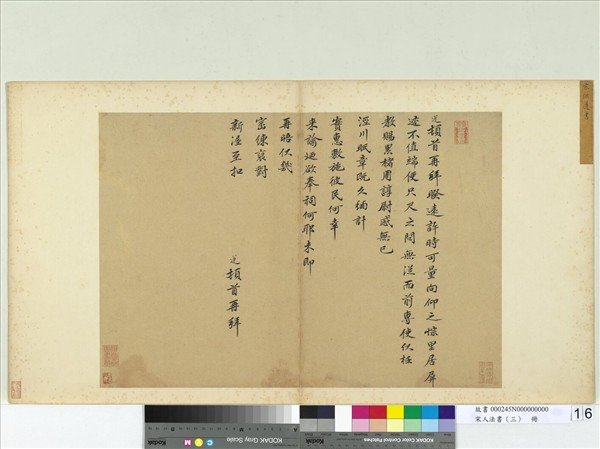 頓首再拜睽遠許時可量向仰之悰里居屏
迹不值端便只尺之間無從而前專使伏枉
教賜累楮周諄尉感無已
涇川眂章既久緬計
實惠敷施彼民何幸
來諭迺欲奉祠何耶未即
再晤伏幾
密練衮對
新渥至扣
頓首再拜
故書 000245N000000000
宋人法書(三) 冊
16
Kodak Gray Scale
KODAK Color Control Patches